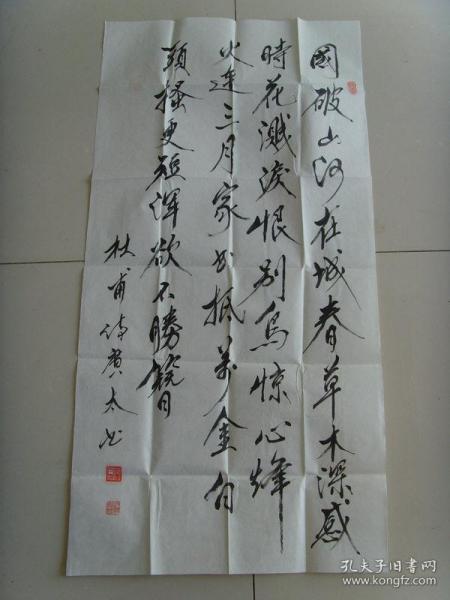 國破山河在城春草木深感
時花濺淚恨别鳥惊心烽
火连三月家书抵萬金白
頭搔更短渾欲不勝簪
杜甫诗廣太书
孔夫子旧书网
www.kongfz.com